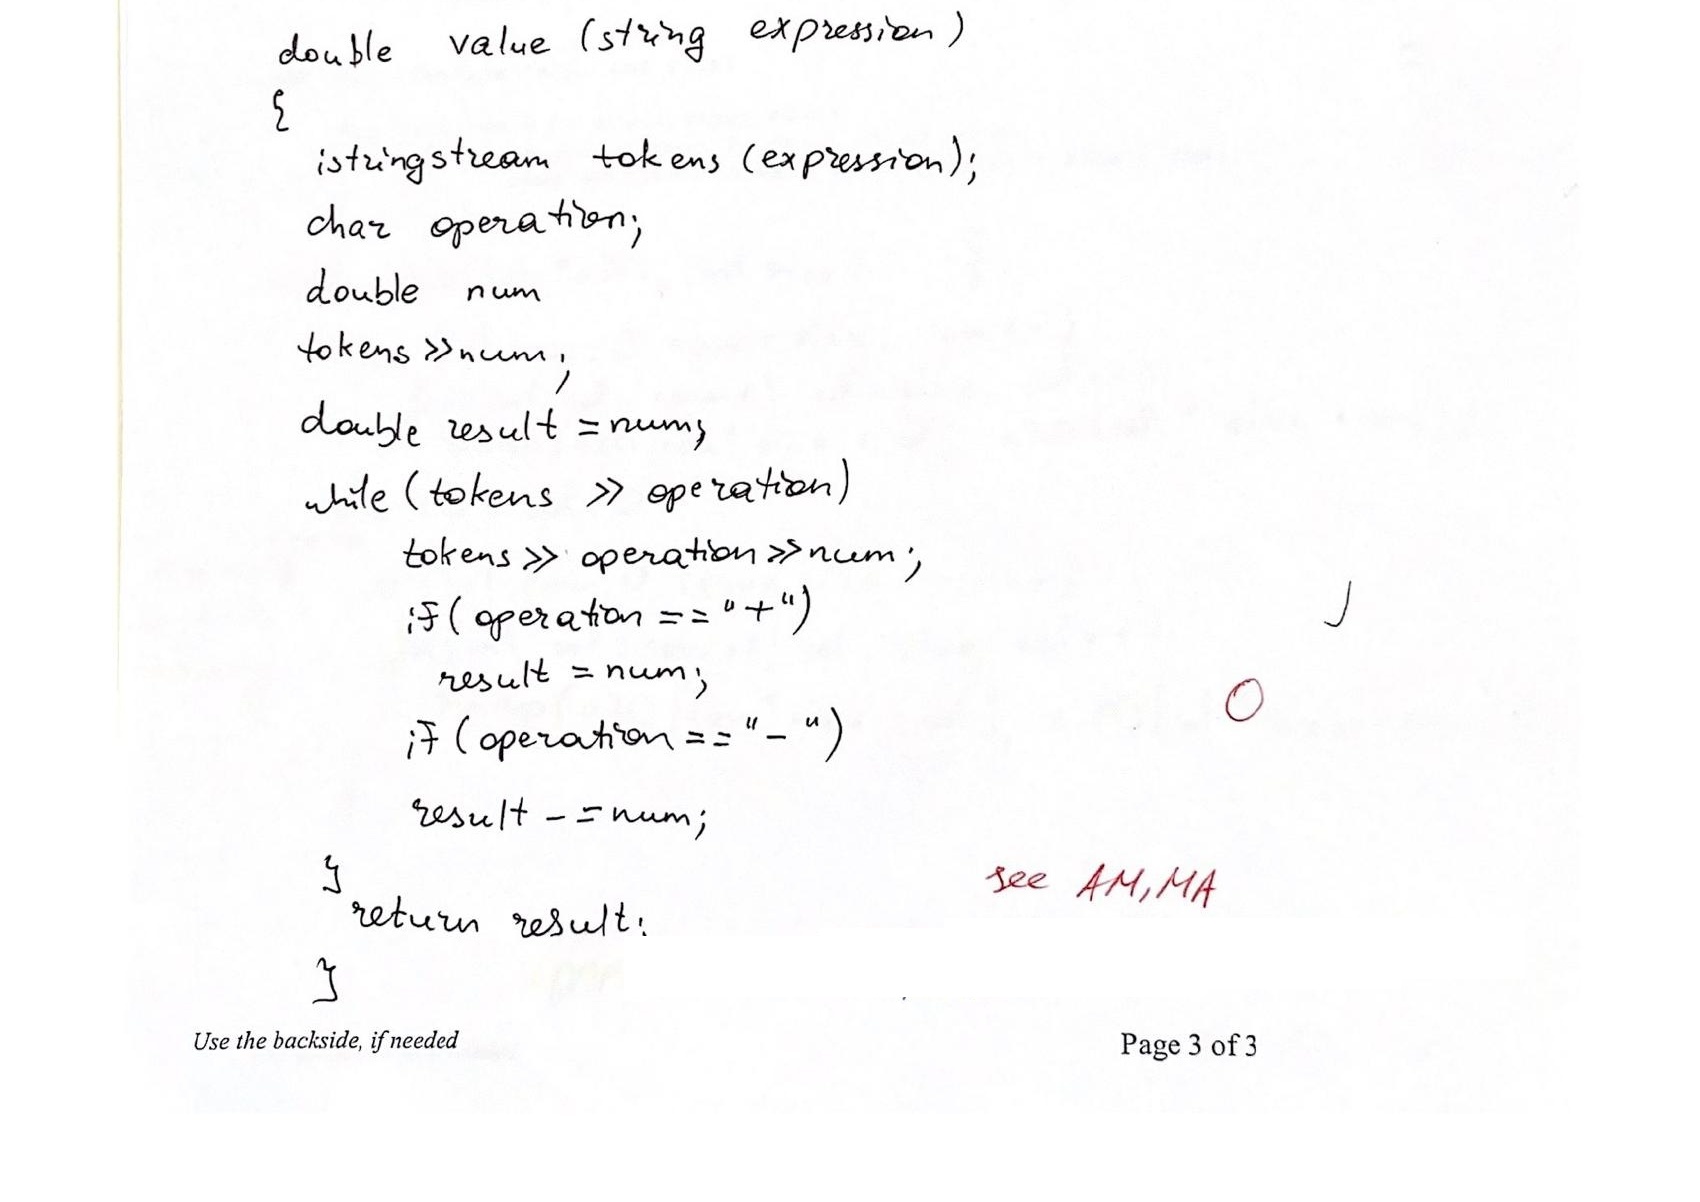 double value (string expression)
{
istringstream tokens (expression);
char operation;
double num
tokens >> num;
double result = num;
while (tokens >> operation)
tokens >> operation >> num;
if (operation == "+")
result = num;
if (operation == "- ")
result - = num;
}
return result:
}
O
see AM, MA
Use the backside, if needed
Page 3 of 3